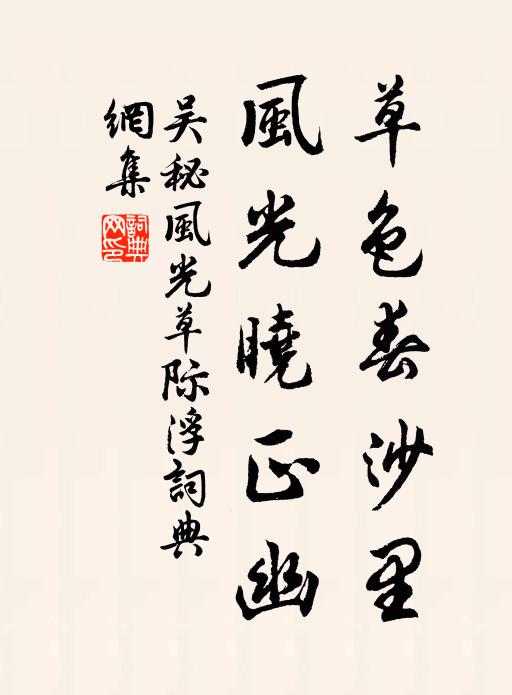 草色春沙里
風光曉正幽
吴秘風光草際浮詞典
網集
詞典
网印